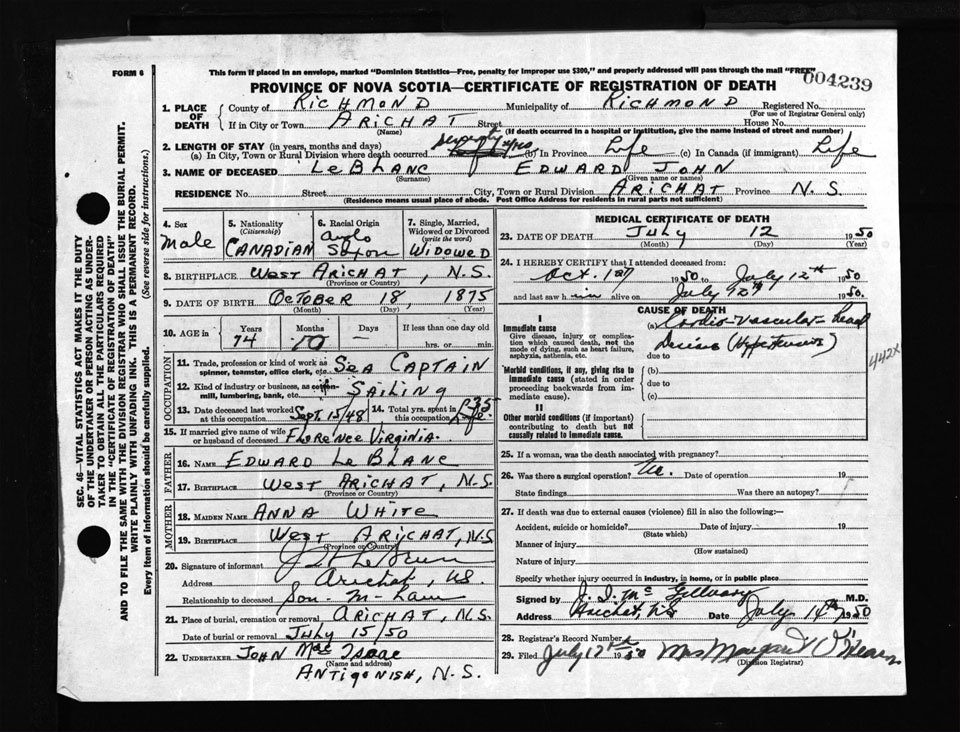 FORM 6
This form if placed in an envelope, marked "Dominion Statistics—Free, penalty for improper use $300," and properly addressed will pass through the mail "FREE"
004239
PROVINCE OF NOVA SCOTIA—CERTIFICATE OF REGISTRATION OF DEATH
1. PLACE OF DEATH
County of RICHMOND Municipality of RICHMOND Registered No.
(For use of Registrar General only)
If in City or Town ARICHAT Street House No.
(Name) (If death occurred in a hospital or institution, give the name instead of street and number)
2. LENGTH OF STAY (in years, months and days)
(a) In City, Town or Rural Division where death occurred Seventy yrs (b) In Province Life (c) In Canada (if immigrant) Life
3. NAME OF DECEASED LeBLANC EDWARD JOHN
(Surname) (Given name or names)
RESIDENCE No. Street City, Town or Rural Division ARICHAT Province N.S.
(Residence means usual place of abode. Post Office Address for residents in rural parts not sufficient)
4. Sex
Male
5. Nationality
(Citizenship)
CANADIAN
6. Racial Origin
Anglo
Saxon
7. Single, Married,
Widowed or Divorced
(write the word)
WIDOWED
8. BIRTHPLACE WEST ARICHAT, N.S.
(Province or Country)
9. DATE OF BIRTH OCTOBER 18, 1875
(Month) (Day) (Year)
10. AGE in
Years
74
Months
Days
—
If less than one day old
hrs. or min.
OCCUPATION
11. Trade, profession or kind of work as
spinner, teamster, office clerk, etc. SEA CAPTAIN
12. Kind of industry or business, as cotton-
mill, lumbering, bank, etc. SAILING
13. Date deceased last worked
at this occupation Sept. 15/48
14. Total yrs. spent in
this occupation 35 Life
15. If married give name of wife
or husband of deceased FLORENCE VIRGINIA
FATHER
16. NAME EDWARD LeBLANC
17. BIRTHPLACE WEST ARICHAT, N.S.
(Province or Country)
MOTHER
18. MAIDEN NAME ANNA WHITE
19. BIRTHPLACE WEST ARICHAT, N.S
(Province or Country)
20. Signature of informant
Address Arichat, N.S.
Relationship to deceased Son-in-law
21. Place of burial, cremation or removal ARICHAT, N.S.
Date of burial or removal JULY 15/50
22. UNDERTAKER JOHN Mac Isaac
(Name and address)
ANTIGONISH, N.S.
MEDICAL CERTIFICATE OF DEATH
23. DATE OF DEATH JULY 12 1950
(Month) (Day) (Year)
24. I HEREBY CERTIFY that I attended deceased from:
Oct. 1st 1950 to July 12th 1950
and last saw him alive on July 12th 1950.
CAUSE OF DEATH
I
Immediate cause
Give disease, injury or complication which caused death, not the mode of dying, such as heart failure, asphyxia, asthenia, etc.
(a) Cardio-vascular
(Hypertensive)
due to
442X
Morbid conditions, if any, giving rise to immediate cause (stated in order proceeding backwards from immediate cause).
(b)
due to
(c)
II
Other morbid conditions (if important) contributing to death but not causally related to immediate cause.
25. If a woman, was the death associated with pregnancy?
26. Was there a surgical operation? No. Date of operation 19
State findings Was there an autopsy?
27. If death was due to external causes (violence) fill in also the following:—
Accident, suicide or homicide? Date of injury 19
(State which)
Manner of injury
(How sustained)
Nature of injury
Specify whether injury occurred in industry, in home, or in public place
Signed by M.D.
Address Arichat, N.S Date July 14th 1950
28. Registrar's Record Number
29. Filed July 17th 1950 Mrs Margaret O'Hearn
(Division Registrar)
SEC. 46—VITAL STATISTICS ACT MAKES IT THE DUTY
OF THE UNDERTAKER OR PERSON ACTING AS UNDER-
TAKER TO OBTAIN ALL THE PARTICULARS REQUIRED
IN THE "CERTIFICATE OF REGISTRATION OF DEATH"
AND TO FILE THE SAME WITH THE DIVISION REGISTRAR WHO SHALL ISSUE THE BURIAL PERMIT.
WRITE PLAINLY WITH UNFADING INK. THIS IS A PERMANENT RECORD.
Every item of information should be carefully supplied. (See reverse side for instructions.)